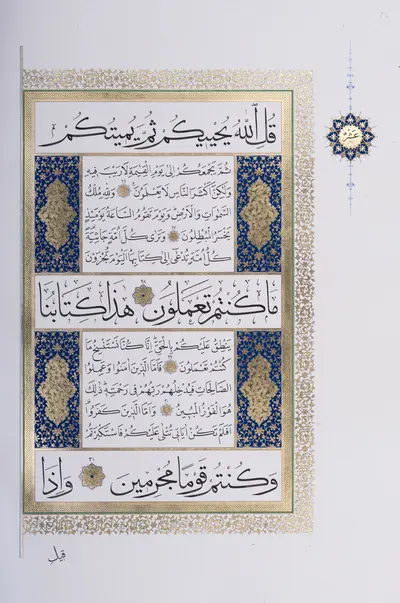 عشر
قُلِ اللّٰهُ يُحْيِيكُمْ ثُمَّ يُمِيتُكُمْ
ثُمَّ يَجْمَعُكُمْ اِلٰى يَوْمِ الْقِيٰمَةِ لَا رَيْبَ فِيهِ
وَلٰكِنَّ اَكْثَرَ النَّاسِ لَا يَعْلَمُونَ وَلِلّٰهِ مُلْكُ
السَّمٰوَاتِ وَالْاَرْضِ وَيَوْمَ تَقُومُ السَّاعَةُ يَوْمَئِذٍ
يَخْسَرُ الْمُبْطِلُونَ وَتَرٰى كُلَّ اُمَّةٍ جَاثِيَةً
كُلُّ اُمَّةٍ تُدْعٰى اِلٰى كِتَابِهَا الْيَوْمَ تُجْزَوْنَ
مَا كُنْتُمْ تَعْمَلُونَ هٰذَا كِتَابُنَا
يَنْطِقُ عَلَيْكُمْ بِالْحَقِّ اِنَّا كُنَّا نَسْتَنْسِخُ مَا
كُنْتُمْ تَعْمَلُونَ فَاَمَّا الَّذِينَ اٰمَنُوا وَعَمِلُوا
الصَّالِحَاتِ فَيُدْخِلُهُمْ رَبُّهُمْ فِى رَحْمَتِهِ ذٰلِكَ
هُوَ الْفَوْزُ الْمُبِينُ وَاَمَّا الَّذِينَ كَفَرُوا
اَفَلَمْ تَكُنْ اٰيَاتِى تُتْلٰى عَلَيْكُمْ فَاسْتَكْبَرْتُمْ
وَكُنْتُمْ قَوْمًا مُجْرِمِينَ ٣١ وَاِذَا
قِيلَ